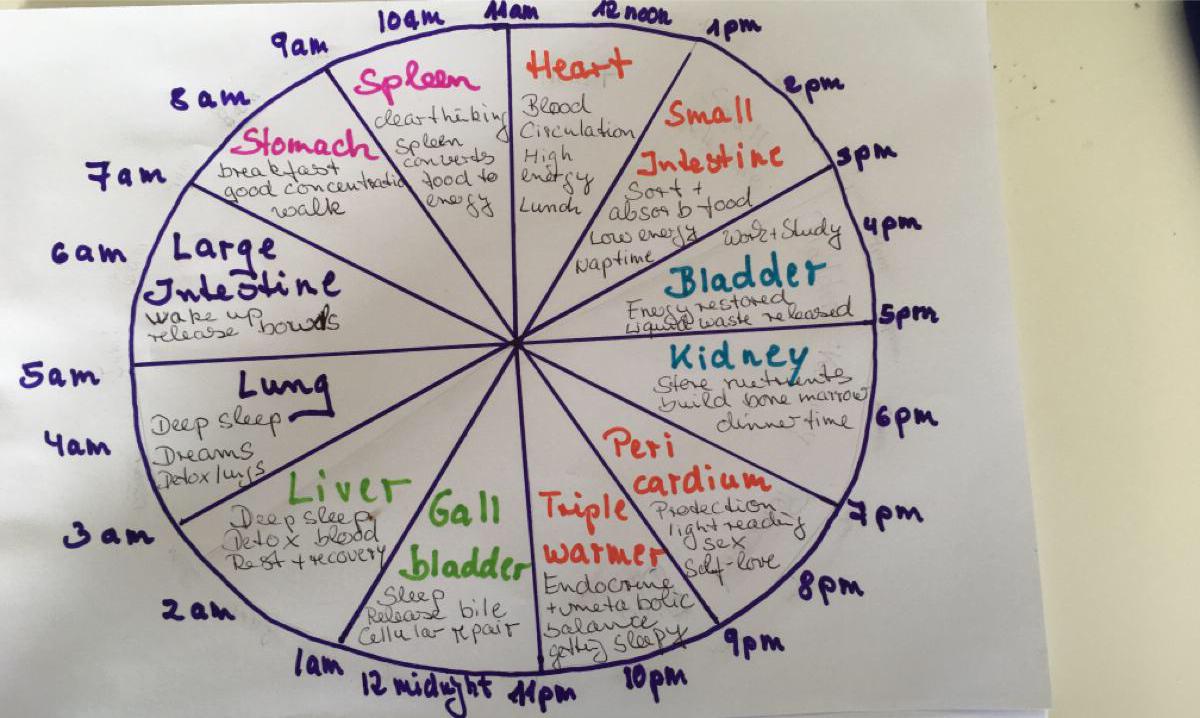 11am
12 noon
1pm
2pm
3pm
4pm
5pm
6pm
7pm
8pm
9pm
10pm
11pm
12 midnight
1am
2am
3am
4am
5am
6am
7am
8am
9am
10am
Heart
Blood
Circulation
High
energy
Lunch
Small
Intestine
Sort +
absorb food
Low energy
Naptime
Work + Study
Bladder
Energy restored
Liquid waste released
Kidney
Store nutrients
build bone marrow
dinner time
Peri
cardium
Protection
light reading
sex
Self-love
Triple
warmer
Endocrine
+ metabolic
balance
getting sleepy
Gall
bladder
Sleep
Release bile
Cellular repair
Liver
Deep sleep
Detox blood
Rest + recovery
Lung
Deep sleep
Dreams
Detox lungs
Large
Intestine
wake up
release bowels
Stomach
breakfast
good concentratio
walk
Spleen
clear thinking
Spleen
converts
food to
energy